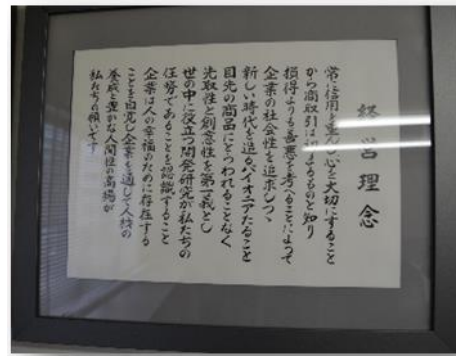 経営理念
常に信用を重んじ心を大切にすること
から商取引は始まるものと知り
損得よりも善悪を考へることによって
企業の社会性を追求しつゝ
新しい時代を造るパイオニアたること
目先の商品にとらわれることなく
先取性と創意性を第一義とし
世の中に役立つ開発研究が私たちの
任務であることを認識すること
企業は人の幸福のために存在する
ことを自覚し企業を通して人格の
養成と豊かな人間性の高揚が
私たちの願いです